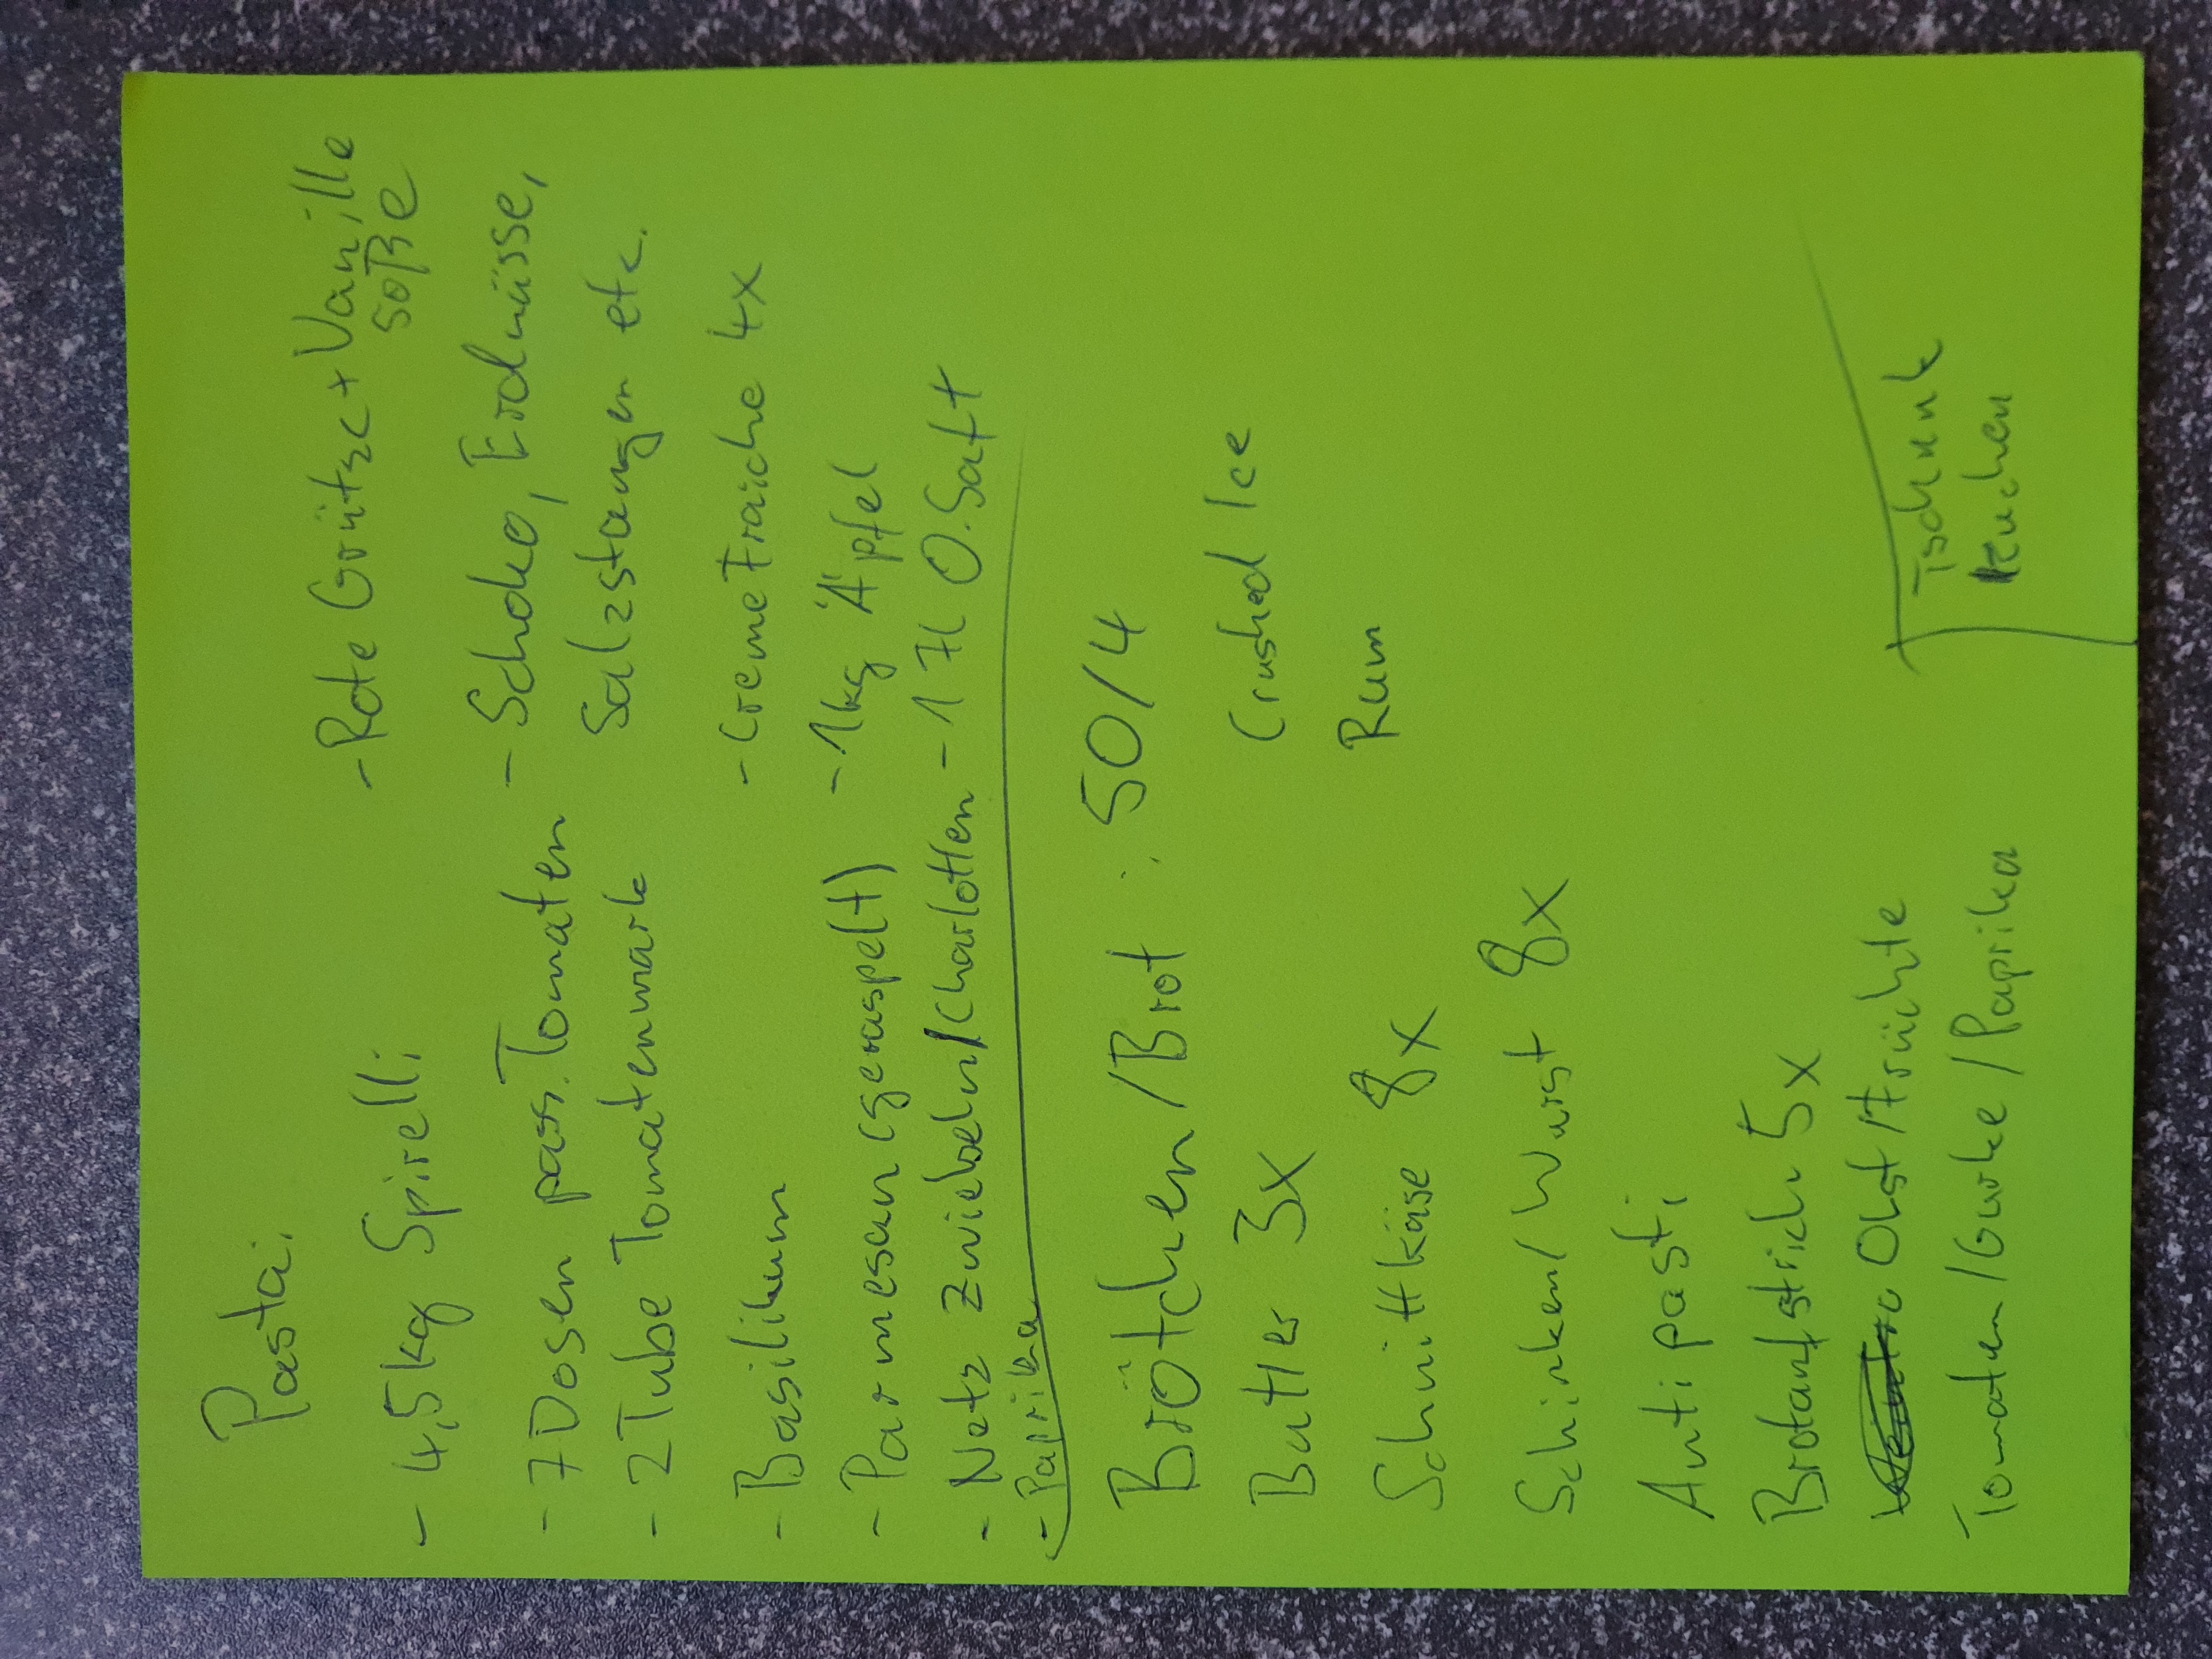 Pasta:
- 4,5kg Spirelli
- 7 Dosen pass. Tomaten
- 2 Tube Tomatenmark
- Basilikum
- Parmesan (geraspelt)
- Netz Zwiebeln/Charlotten
- Paprika
- Rote Grütze + Vanille
soße
- Schoko, Erdnüsse,
Salzstangen etc.
- Creme Fraiche 4x
- 1kg Äpfel
- 1 Fl O.Saft
Brötchen/Brot: 50/4
Butter 3x
Schnittkäse 8x
Schinken/Wurst 8x
Antipasti
Brotaufstrich 5x
Obst/Früchte
Tomaten/Gurke/Paprika
Crushed Ice
Rum
Tschunk
Kuchen